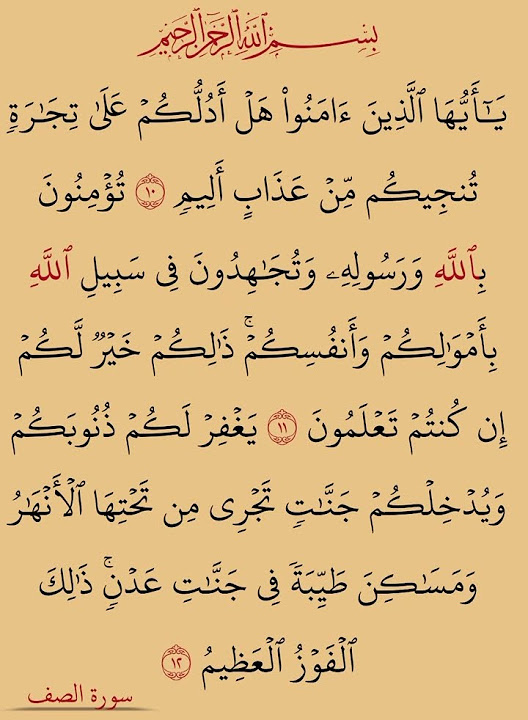 بِسْمِ اللَّهِ الرَّحْمَٰنِ الرَّحِيمِ
يَٰٓأَيُّهَا ٱلَّذِينَ ءَامَنُوا۟ هَلْ أَدُلُّكُمْ عَلَىٰ تِجَٰرَةٍۢ
تُنجِيكُم مِّنْ عَذَابٍ أَلِيمٍۢ ١٠ تُؤْمِنُونَ
بِٱللَّهِ وَرَسُولِهِۦ وَتُجَٰهِدُونَ فِى سَبِيلِ ٱللَّهِ
بِأَمْوَٰلِكُمْ وَأَنفُسِكُمْ ۚ ذَٰلِكُمْ خَيْرٌۭ لَّكُمْ
إِن كُنتُمْ تَعْلَمُونَ ١١ يَغْفِرْ لَكُمْ ذُنُوبَكُمْ
وَيُدْخِلْكُمْ جَنَّٰتٍۢ تَجْرِى مِن تَحْتِهَا ٱلْأَنْهَٰرُ
وَمَسَٰكِنَ طَيِّبَةًۭ فِى جَنَّٰتِ عَدْنٍۢ ۚ ذَٰلِكَ
ٱلْفَوْزُ ٱلْعَظِيمُ ١٢
سورة الصف